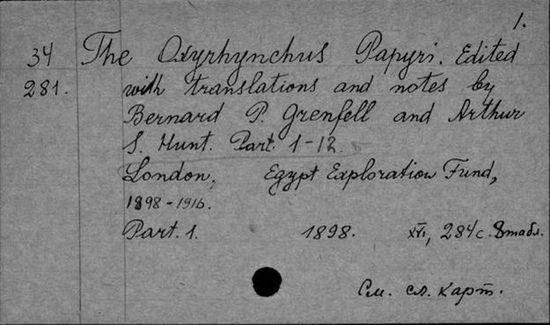 1.
34 The Oxyrhynchus Papyri. Edited
281. with translations and notes by
Bernard P. Grenfell and Arthur
S. Hunt. Part. 1-12.
London, Egypt Exploration Fund,
1898-1916.
Part. 1. 1898. XVI, 284 с. 8 табл.
См. сл. карт.